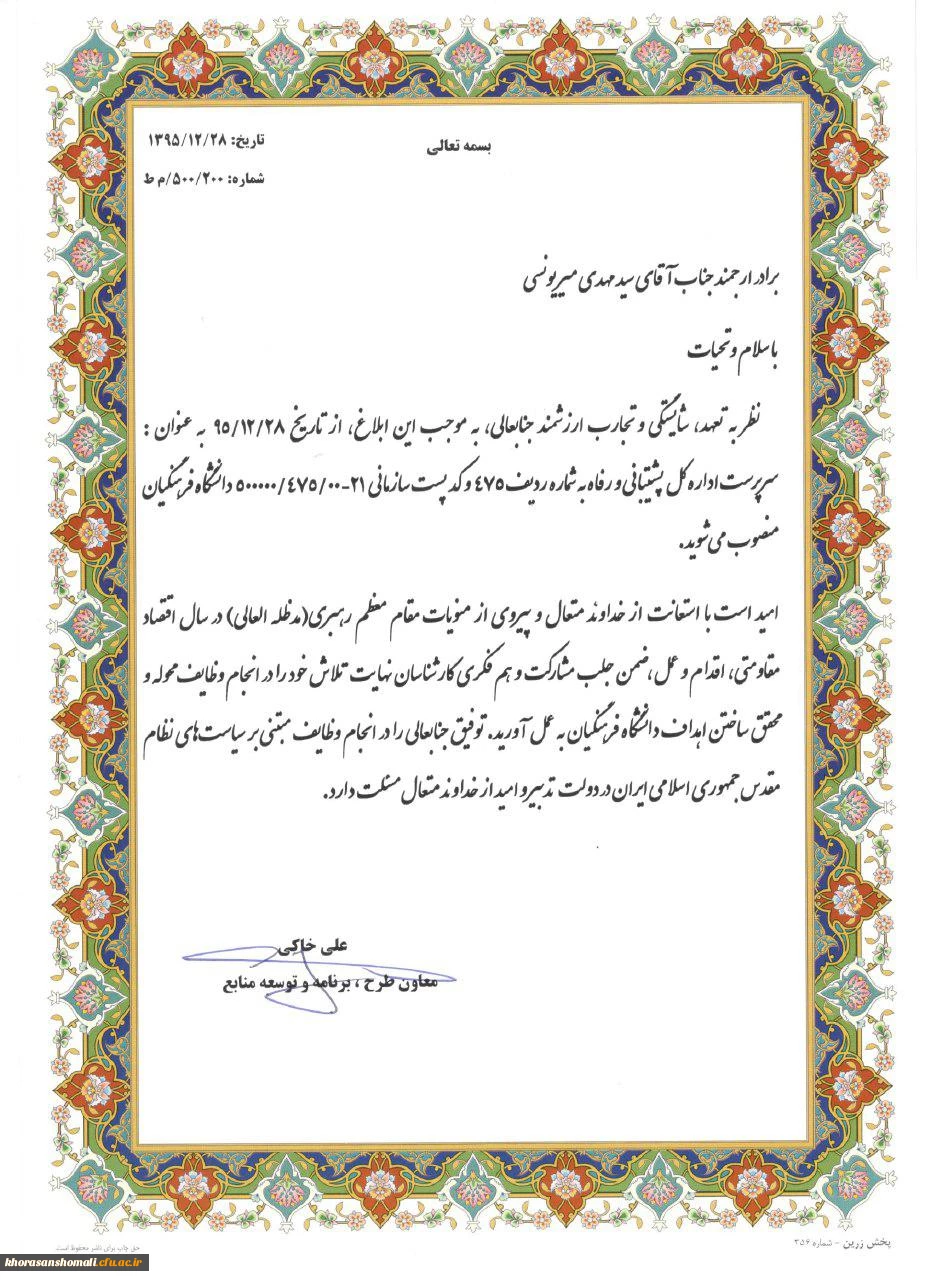 بسمه تعالی
تاریخ: ۱۳۹۵/۱۲/۲۸
شماره: ۵۰۰/۲۰۰/م ط
برادر ارجمند جناب آقای سید مهدی میریونسی
با سلام و تحیات
نظر به تعهد، شایستگی و تجارب ارزشمند جنابعالی، به موجب این ابلاغ، از تاریخ ۹۵/۱۲/۲۸ به عنوان :
سرپرست اداره کل پشتیبانی و رفاه به شماره ردیف ۴۷۵ و کد پست سازمانی ۲۱-۵۰۰۰۰۰/۴۷۵/۰۰ دانشگاه فرهنگیان
منصوب می شوید.
امید است با استعانت از خداوند متعال و پیروی از منویات مقام معظم رهبری(مدظله العالی) در سال اقتصاد
مقاومتی، اقدام و عمل، ضمن جلب مشارکت و هم فکری کارشناسان نهایت تلاش خود را در انجام وظایف محوله و
محقق ساختن اهداف دانشگاه فرهنگیان به عمل آورید. توفیق جنابعالی را در انجام وظایف مبتنی بر سیاست های نظام
مقدس جمهوری اسلامی ایران در دولت تدبیر و امید از خداوند متعال مسئلت دارد.
علی خاکی
معاون طرح ، برنامه و توسعه منابع
پخش زرین - شماره ۳۵۶
حق چاپ برای ناشر محفوظ است.
khorasanshomali.cfu.ac.ir